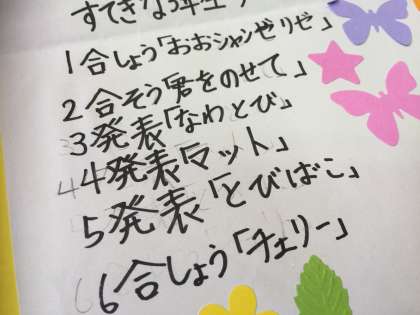 すてきな3年生
1合しょう「おおシャンゼリゼ」
2合そう「君をのせて」
3発表「なわとび」
4発表「マット」
5発表「とびばこ」
6合しょう「チェリー」